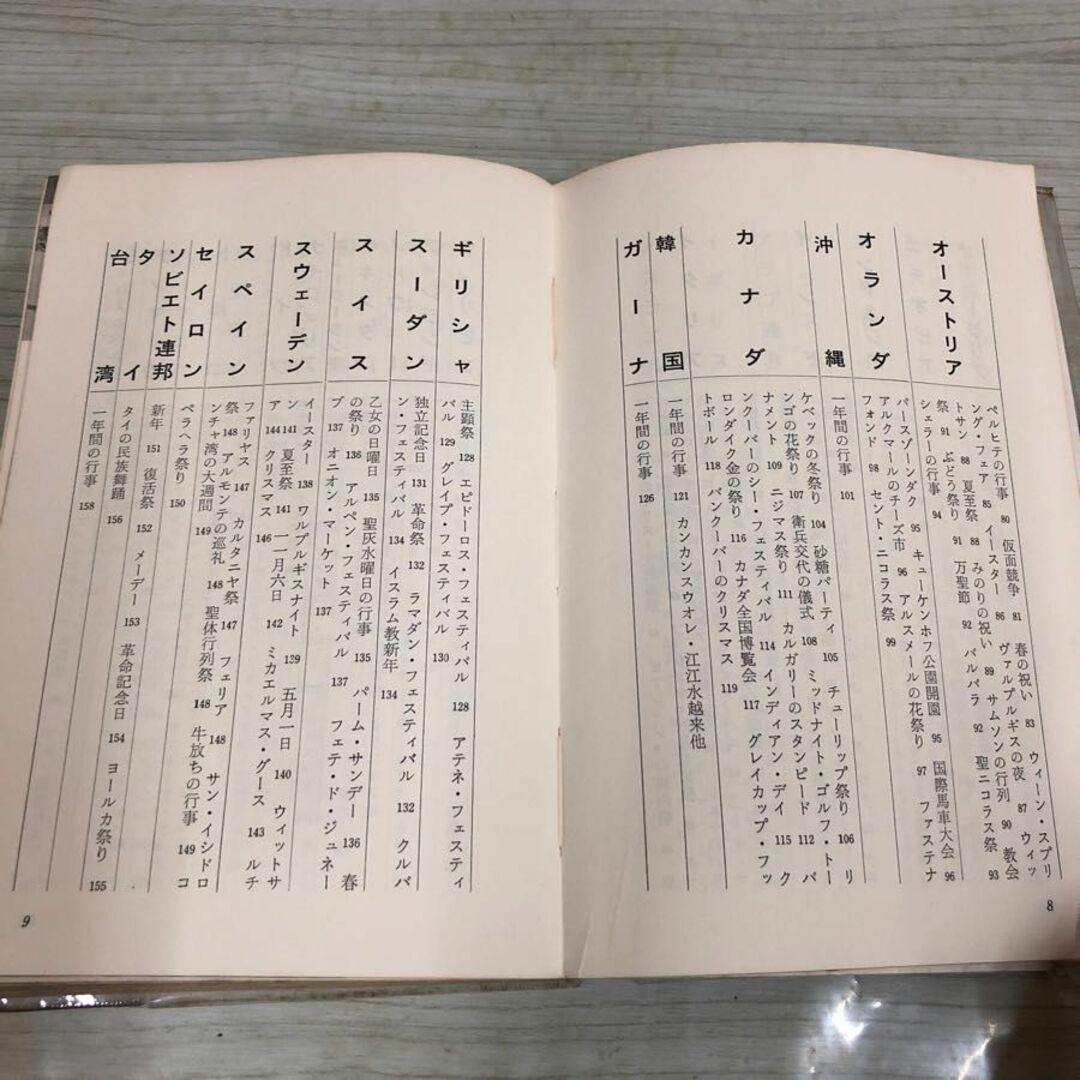 オーストリア
ペルヒテの行事 80 仮面競争 81 春の祝い 83 ウィーン・スプリ
ング・フェア 85 イースター 86 ヴァルプルギスの夜 87 ウィッ
トサン 88 夏至祭 88 みのりの祝い 89 サムソンの行列 90 教会
祭 91 ぶどう祭り 91 万聖節 92 バルバラ 92 聖ニコラス祭 93
シェラーの行事 94
オランダ
パースゾーンダク 95 キューケンホフ公園開園 95 国際馬車大会 96
アルクマールのチーズ市 96 アルスメールの花祭り 97 ファステナ
フォンド 98 セント・ニコラス祭 99
沖縄
一年間の行事 101
カナダ
ケベックの冬祭り 104 砂糖パーティ 105 チューリップ祭り 106 リ
ンゴの花祭り 107 衛兵交代の儀式 108 ミッドナイト・ゴルフ・トー
ナメント 109 ニジマス祭り 111 カルガリーのスタンピード 112 バ
ンクーバーのシー・フェスティバル 114 インディアン・デイ 115 ク
ロンダイク金の祭り 116 カナダ全国博覧会 117 グレイカップ・フッ
トボール 118 バンクーバーのクリスマス 119
韓国
一年間の行事 121 カンカンスウオレ・江江水越来他
ガーナ
一年間の行事 126
8
ギリシャ
主顕祭 128 エピドーロス・フェスティバル 128 アテネ・フェスティ
バル 129 グレイプ・フェスティバル 130
スーダン
独立記念日 131 革命祭 132 ラマダン・フェスティバル 132 クルバ
ン・フェスティバル 134 イスラム教新年 134
スイス
乙女の日曜日 135 聖灰水曜日の行事 135 パーム・サンデー 136 春
の祭り 136 アルペン・フェスティバル 137 フェテ・ド・ジュネー
ブ 137 オニオン・マーケット 137
スウェーデン
イースター 138 ワルプルギスナイト 139 五月一日 140 ウィットサ
ン 141 夏至祭 141 一一月六日 142 ミカエルマス・グース 143 ルチ
ア 144 クリスマス 146
スペイン
ファリヤス 147 カルタニヤ祭 147 フェリア 148 サン・イシドロ
祭 148 アルモンテの巡礼 148 聖体行列祭 148 牛放ちの行事 149 コ
ンチャ湾の大週間 149
セイロン
ペラヘラ祭り 150
ソビエト連邦
新年 151 復活祭 152 メーデー 153 革命記念日 154 ヨールカ祭り 155
タイ
タイの民族舞踊 156
台湾
一年間の行事 158
9